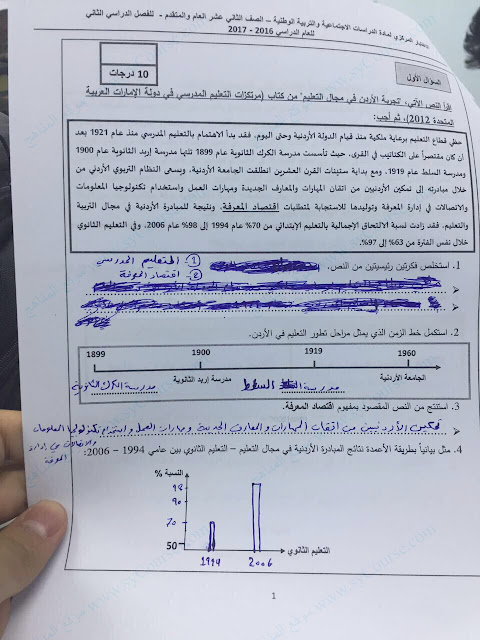 اختبار المركزي لمادة الدراسات الاجتماعية والتربية الوطنية – الصف الثاني عشر العام والمتقدم - للفصل الدراسي الثاني
للعام الدراسي 2016 - 2017
السؤال الأول
10 درجات
اقرأ النص الآتي، "تجربة الأردن في مجال التعليم" من كتاب (مرتكزات التعليم المدرسي في دولة الإمارات العربية
المتحدة 2012)، ثم أجب:
حظي قطاع التعليم برعاية ملكية منذ قيام الدولة الأردنية وحتى اليوم. فقد بدأ الاهتمام بالتعليم المدرسي منذ عام 1921 بعد
أن كان مقتصراً على الكتاتيب في القرى. حيث تأسست مدرسة الكرك الثانوية عام 1899 تلتها مدرسة إربد الثانوية عام 1900
ومدرسة السلط عام 1919. ومع بداية ستينات القرن العشرين انطلقت الجامعة الأردنية. ويسعى النظام التربوي الأردني من
خلال مبادرته إلى تمكين الأردنيين من اتقان المهارات والمعارف الجديدة ومهارات العمل واستخدام تكنولوجيا المعلومات
والاتصالات في إدارة المعرفة وتوليدها للاستجابة لمتطلبات اقتصاد المعرفة. ونتيجة للمبادرة الأردنية في مجال التربية
والتعليم. فقد زادت نسبة الالتحاق الإجمالية بالتعليم الإبتدائي من 70% عام 1994 إلى 98% عام 2006. وفي التعليم الثانوي
خلال نفس الفترة من 63% إلى 97%.
1. استخلص فكرتين رئيسيتين من النص.
1) التعليم المدرسي
2) اقتصاد المعرفة
2. استكمل خط الزمن الذي يمثل مراحل تطور التعليم في الأردن.
1899 1900 1919 1960
مدرسة الكرك الثانوية مدرسة إربد الثانوية مدرسة السلط الجامعة الأردنية
3. استنتج من النص المقصود بمفهوم اقتصاد المعرفة.
تمكين الأردنيين من اتقان المهارات والمعارف الجديدة ومهارات العمل واستخدام تكنولوجيا المعلومات
والاتصالات في إدارة
المعرفة
4. مثل بيانياً بطريقة الأعمدة نتائج المبادرة الأردنية في مجال التعليم – التعليم الثانوي بين عامي 1994 – 2006:
النسبة %
٩٨
٩٠
٧٠
50
التعليم الثانوي
1994 2006
1